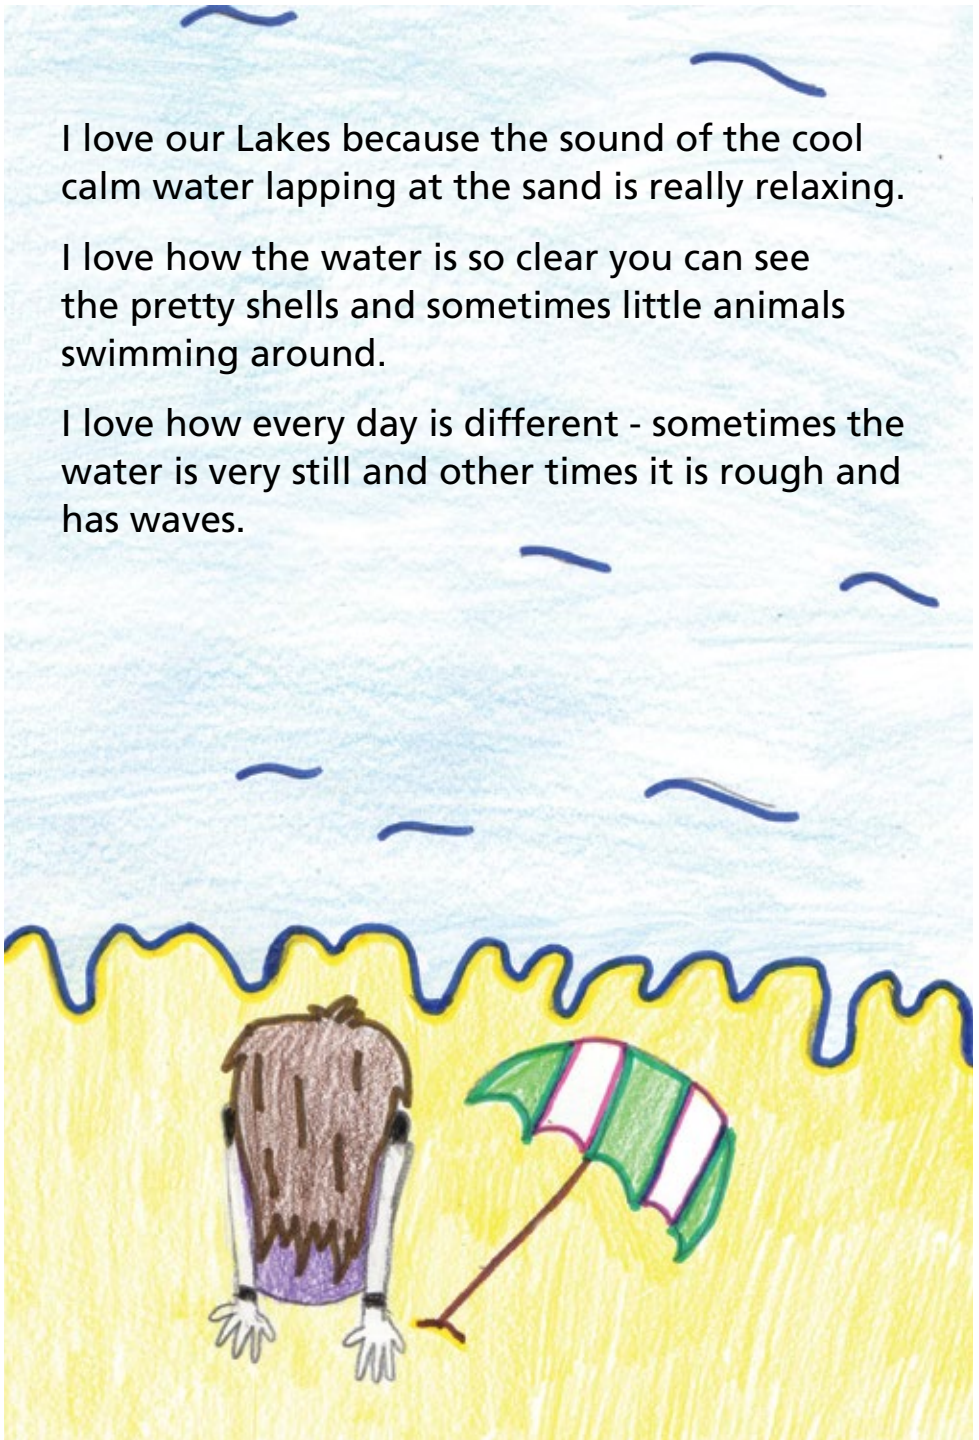 I love our Lakes because the sound of the cool
calm water lapping at the sand is really relaxing.
I love how the water is so clear you can see
the pretty shells and sometimes little animals
swimming around.
I love how every day is different - sometimes the
water is very still and other times it is rough and
has waves.